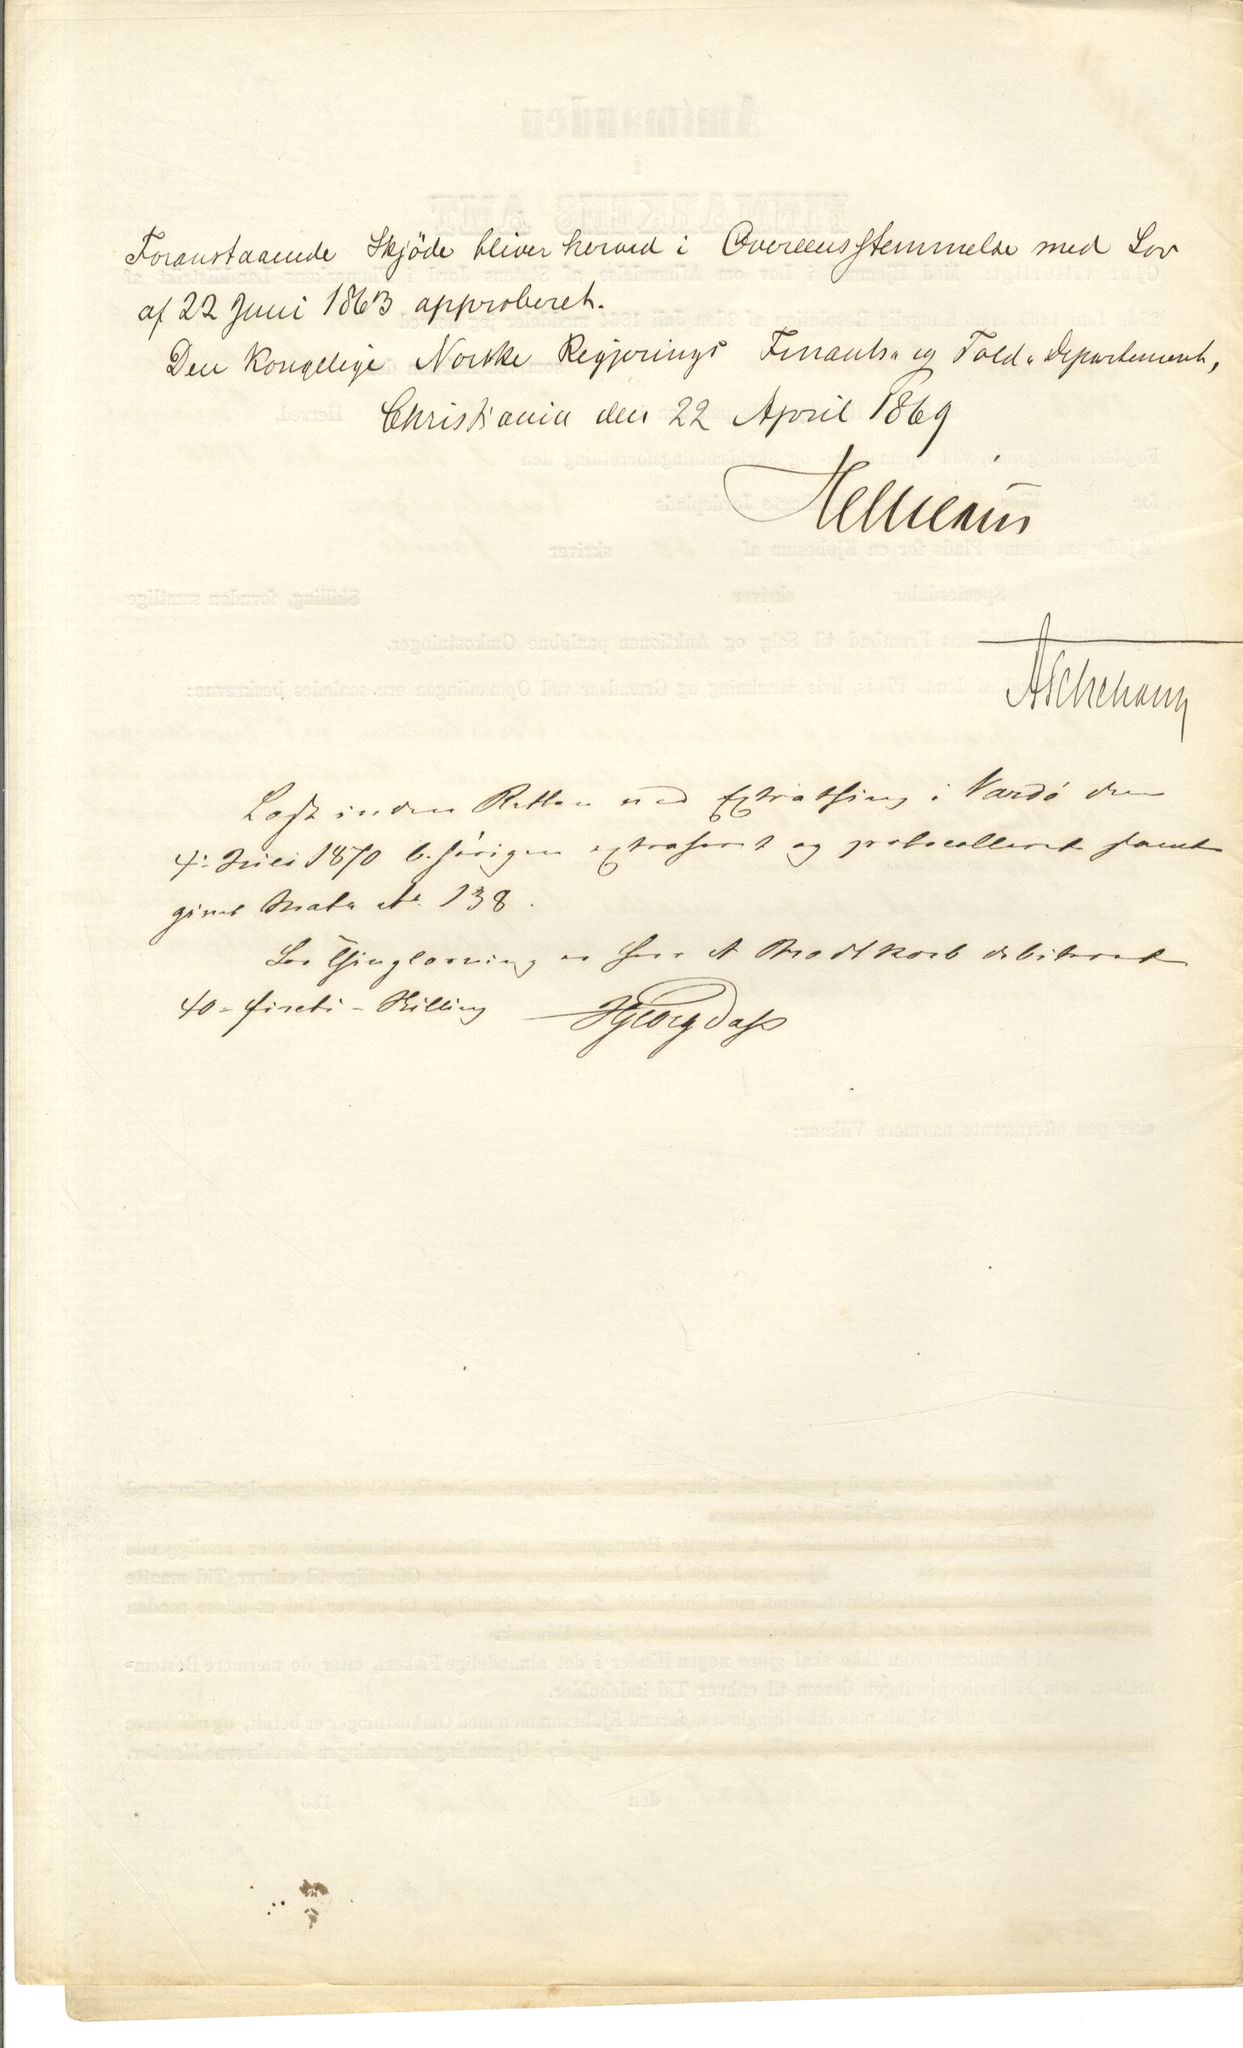 Foranstaaende Skjöde bliver herved i Overeensstemmelse med Lov
af 22 Juni 1863 approberet.
Den Kongelige Norske Regjerings Finants- og Told-Departement,
Christiania den 22 April 1869
Helliesen
Aschehoug
Læst inden Retten ved Extrathing i Vardö den
4: Juli 1870 behörigen extraheret og protocolleret samt
givet Mata No 138.
For Thinglæsning er Herr A Brodtkorb debiteret
40 - fireti - Skilling